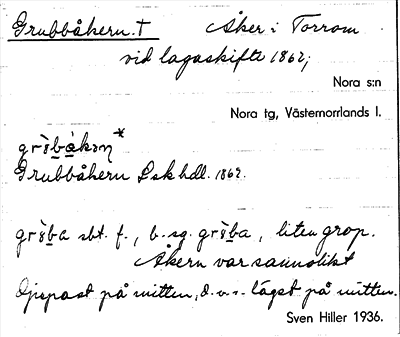 Grubbåkern. † Åker i Torrom
vid lagaskifte 1862;
Nora s:n
Nora tg, Västernorrlands l.
Grubbåkern Lskhdl. 1862.
sbt. f., b. sg. , liten grop.
Åkern var sannolikt
djupast på mitten, d.v.s. lägst på mitten.
Sven Hiller 1936.